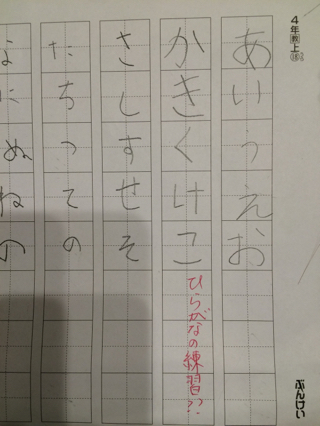 4年教上
あいうえお
かきくけこ
ひらがなの練習??
さしすせそ
たちつての
なにぬねの
ぶんけい